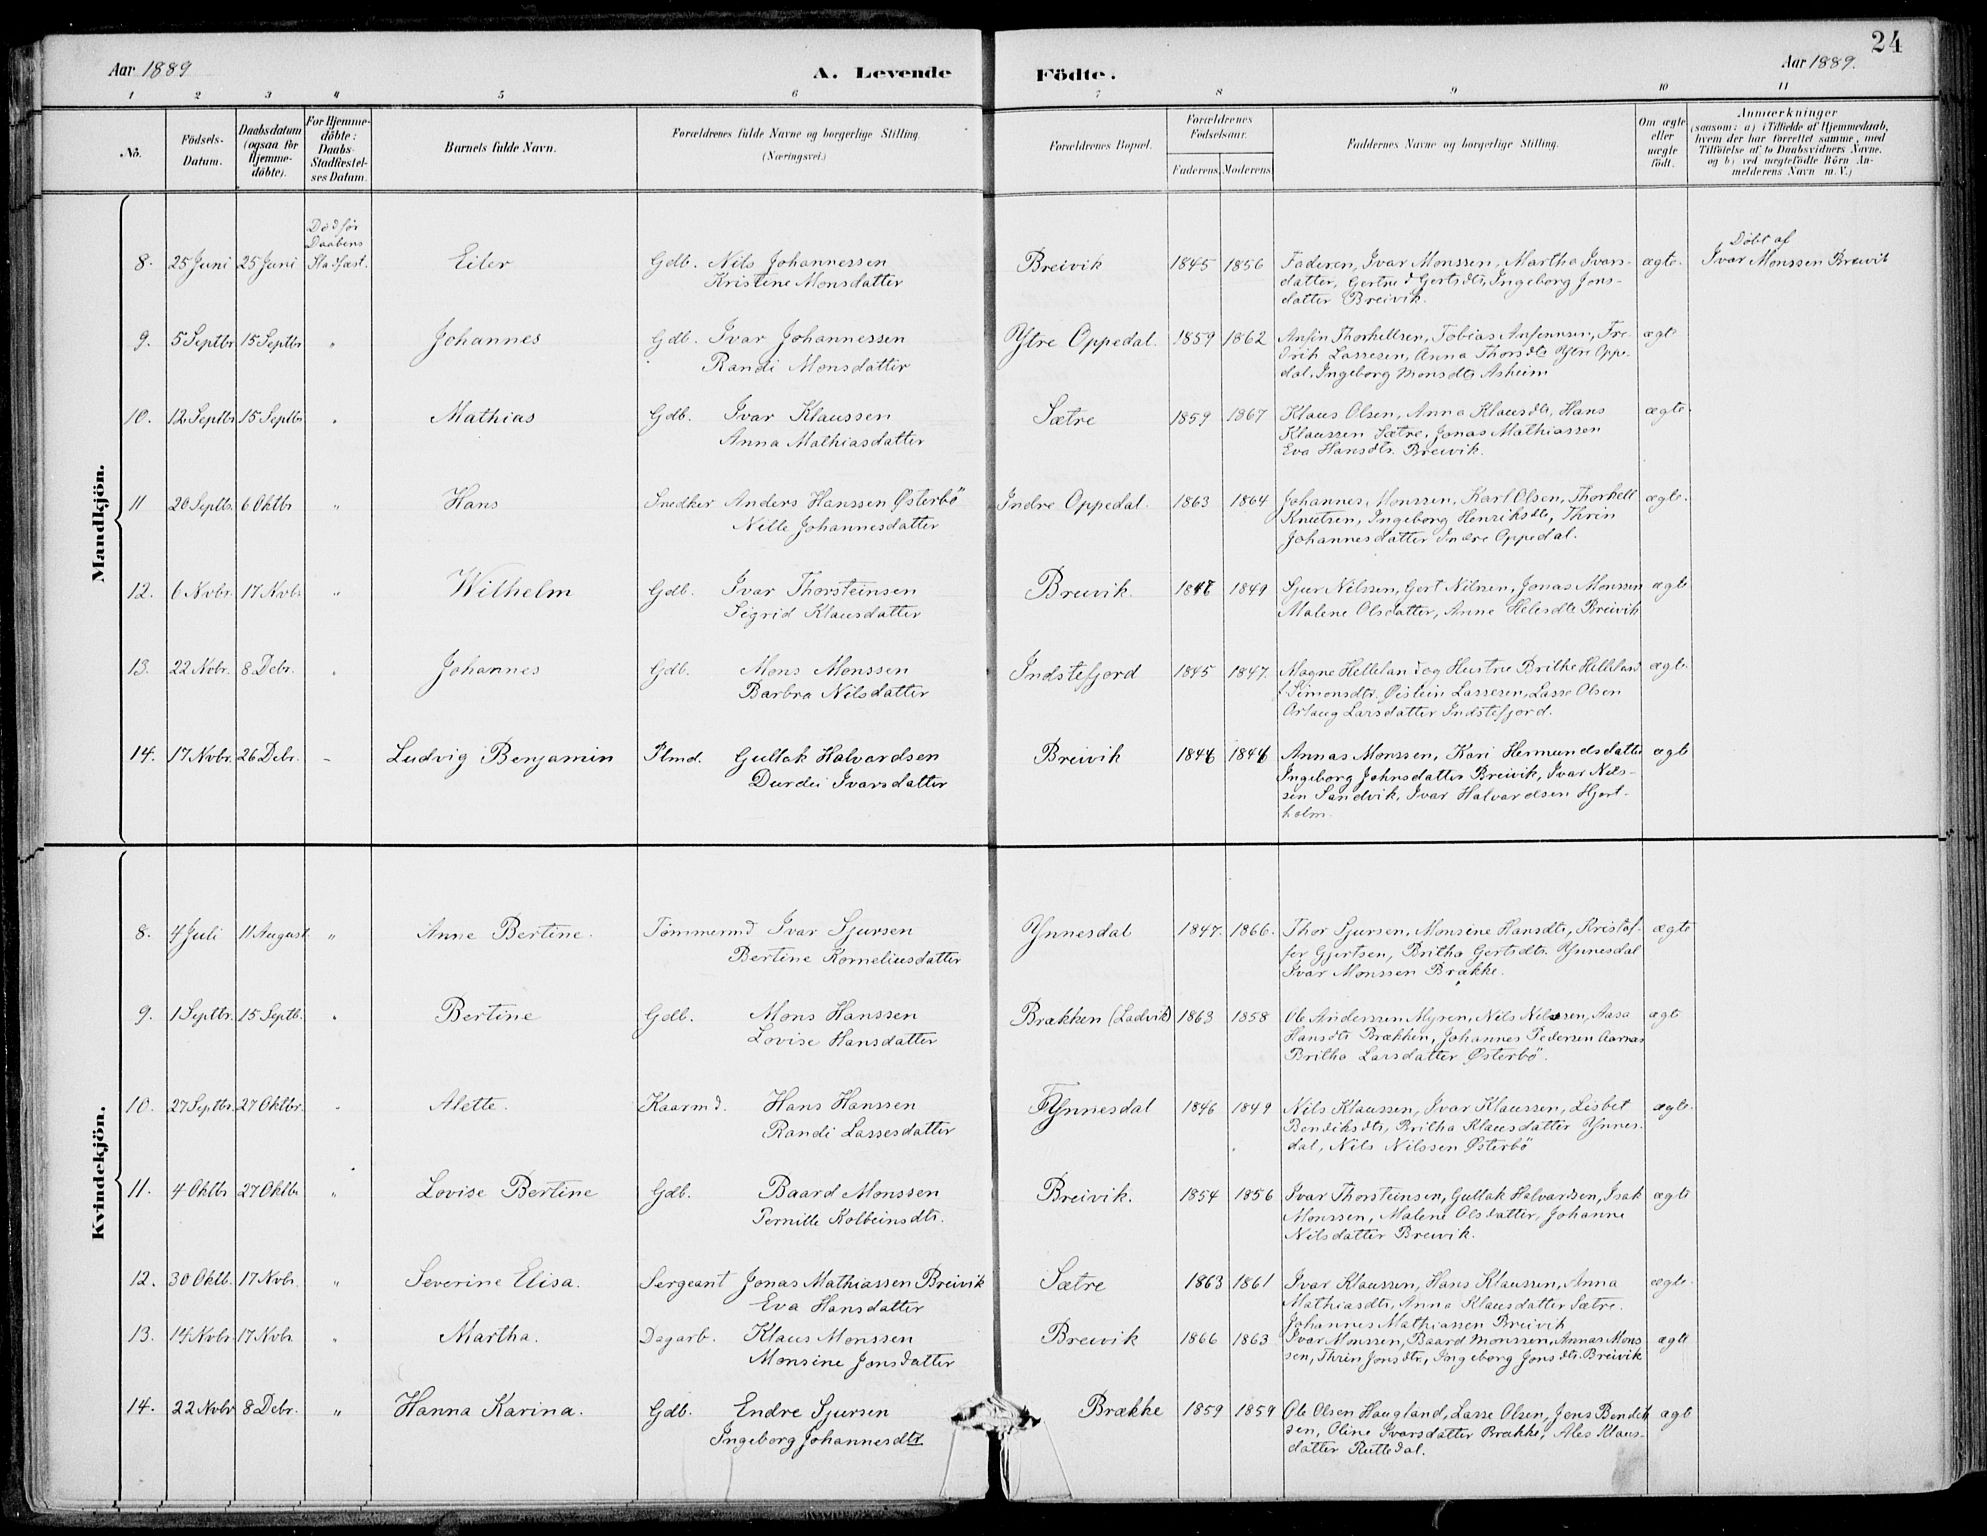 24
Aar 1889
A. Levende
Födte.
Aar 1889.
1 2 3 4 5 6 7 8 9 10 11
No.
Födsels-Datum.
Daabsdatum (ogsaa for Hjemme-döbte).
For Hjemme-döbte: Daabs-Stadfæstel-ses Datum.
Barnets fulde Navn.
Forældrenes fulde Navne og borgerlige Stilling.
(Næringsvei.)
Forældrenes Bopæl.
Forældrenes Födselsaar.
Faderens. Moderens.
Faddernes Navne og borgerlige Stilling.
Om ægte eller uægte födt.
Anmærkninger
(saasom: a) i Tilfælde af Hjemmedaab,
hvem der har forrettet samme, med
Tilföielse af to Daabsvidners Navne.
og b) ved uægtefödte Börn An-
melderens Navn m.V.)
Mandkjön.
Död før
Daabens
Døbt af
8. 25 Juni 25 Juni Stadfæst. Eiler Gdb. Nils Johannessen Breivik 1845 1856 Faderen, Ivar Monssen, Martha Ivars- ægte. Ivar Monssen Breivik
Kristine Monsdatter datter, Gertrud Gertsdtr, Ingeborg Jons-
datter Breivik.
9. 5 Septbr 15 Septbr " Johannes Gdb. Ivar Johannessen Ytre Oppedal. 1859 1862 Ansin Thorkellsen, Tobias Ansennsen, Fre- ægt
Randi Monsdatter drik Lassesen, Anna Thorsdtr Ytre Oppe-
dal, Ingeborg Monsdtr Asheim
10. 12 Septbr 15 Septbr " Mathias Gdb. Ivar Klaussen Sætre 1859 1867 Klaus Olsen, Anna Klausdtr, Hans ægte.
Anna Mathiasdatter Klaussen Sætre, Jonas Mathiassen
Eva Hansdtr. Breivik.
11 20 Septbr. 6 Oktbr " Hans Snedker Anders Hanssen Østerbö Indre Oppedal. 1863 1864 Johannes Monssen, Karl Olsen, Thorkell ægte.
Nille Johannesdatter Knutsen, Ingeborg Henriksdtr, Thrin
Johannesdatter Indre Oppedal.
12. 6 Nvbr. 17 Nvbr " Wilhelm Gdb. Ivar Thorsteinsen Breivik 1849 Sjur Nilssen, Gert Nilsen, Jonas Monssen ægte
Sigrid Klausdatter Malene Olsdatter, Anne Breivik
13. 22 Nvbr. 8 Debr. " Johannes Gdb. Mons Monssen Indstefjord 1845 1847. Magne Helleland og Hustru Brithe Helleland ægte.
Barbra Nilsdatter Simonsdtr. Øistein Lassesen, Lasse Olsen
Larsdatter Indstefjord.
14. 17 Nvbr. 26 Debr. - Ludvig Benjamin Plmd. Gullak Halvardsen Breivik Annas Monssen, Kari Hermundsdatter ægte
Durdei Ivarsdatter Ingeborg Johnsdatter Breivik, Ivar Nils-
sen Sandvik, Ivar Halvardsen Hjert-
holm.
Kvindekjön.
8. 4 Juli 11 August " Anne Bertine. Tömmermd Ivar Sjursen Ynnesdal 1847. 1866. Thor Sjursen, Monsine Hansdtr, Kristof- ægte
Bertine Korneliusdatter fer Gjertsen, Britha Gertsdtr. Ynnesdal
Ivar Monssen Brække.
9. 1 Septbr. 15 Septb. " Bertine Gdb. Mons Hanssen Brækken (Ladvik) 1863 1858 Ole Anderssen Myren, Nils Nilssen, Aasa ægte
Lovise Hansdatter Hansdtr Brækken, Johannes Pedersen Aarnas
Britha Larsdatter Østerbö.
10. 27 Septbr. 27 Oktbr. " Alette. Kaarmd. Hans Hanssen Ynnesdal 1846 1849 Nils Klaussen, Ivar Klaussen, Lisbet ægte.
Randi Lassesdatter Bendiksdtr, Britha Klausdatter Ynnes-
dal, Nils Nilssen Østerbö
11. 4 Oktbr 27 Oktbr " Lovise Bertine Gdb. Baard Monssen Breivik. 1854 1856 Ivar Thorsteinsen, Gullak Halvardsen, Isak ægte
Pernille Kolbeinsdtr. Monssen, Malene Olsdatter, Johanne
Nilsdatter Breivik.
12. 30 Oktb. 17 Nvbr. " Severine Elisa. Sergeant Jonas Mathiassen Breivik Sætre 1863 1861 Ivar Klaussen, Hans Klaussen, Anna ægte.
Eva Hansdatter Mathiasdtr, Anna Klausdatter Sætre.
Johannes Mathiassen Breivik
13. 14 Nvbr. 17 Nvbr. " Martha. Dagarb. Klaus Monssen Breivik 1866 1863 Ivar Monssen, Baard Monssen, Annas Mons ægte
Monsine Jonsdatter sen, Thrin Jonsdtr, Ingeborg Jonsdtr. Breivik
14. 22 Nvbr 8 Debr. " Hanna Karina. Gdb. Endre Sjursen Brække 1859 1859 Ole Olsen Haugland, Lasse Olsen, Jens Bendik ægt
Ingeborg Johannesdtr sen, Oline Ivarsdatter Brække, Ales Klaus-
datter Rutledal.